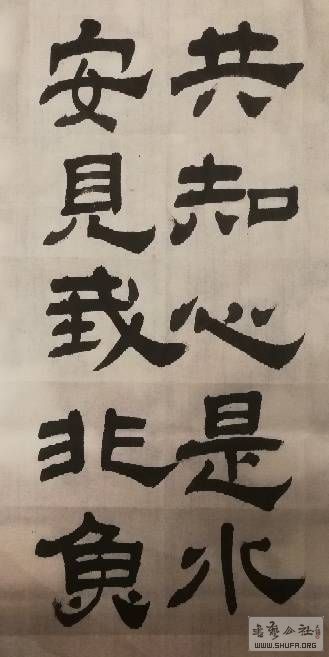 共知心是水
安見我非魚
书艺公社
WWW.SHUFA.ORG